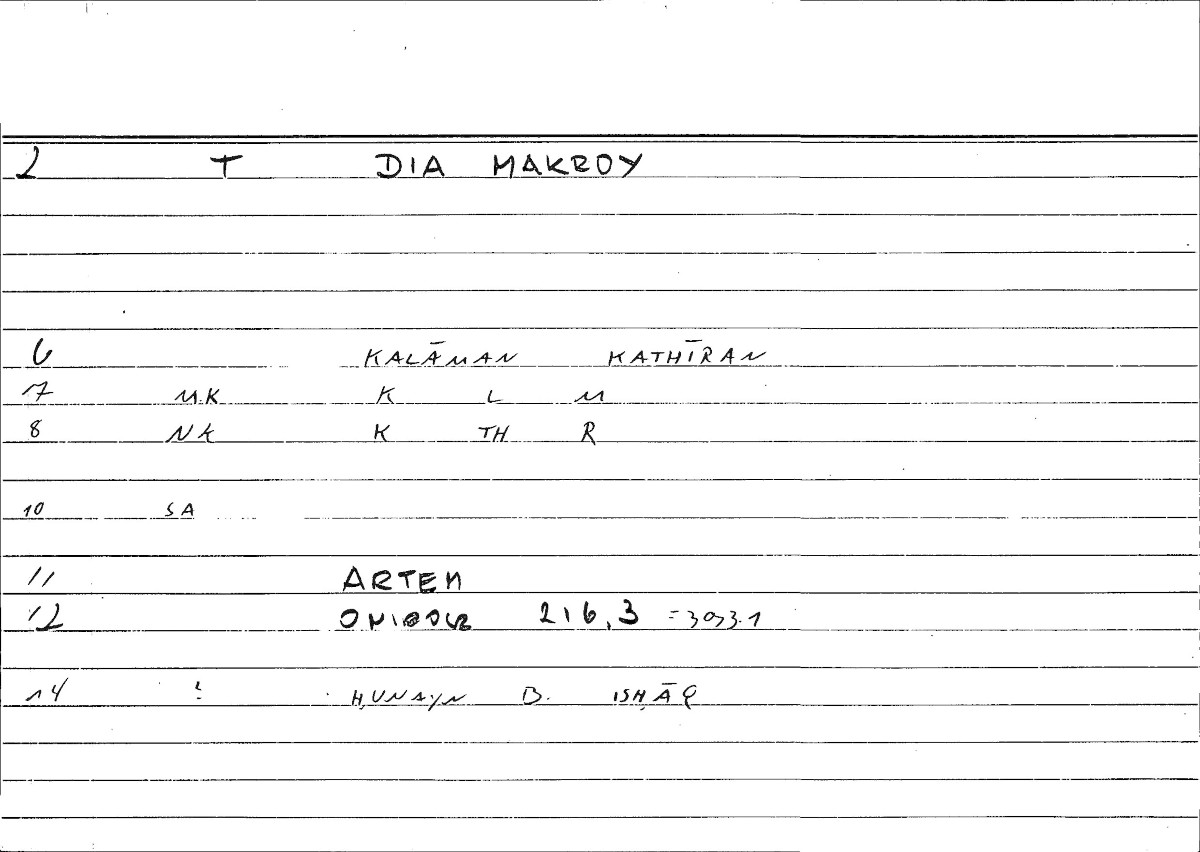 2 T DIA MAKROY
6 KALĀMAN KATHĪRAN
7 MK K L M
8 NK K TH R
10 SA
11 ARTEM
12 ONIROCR 216,3
14 ḤUNAYN B. ISḤĀQ